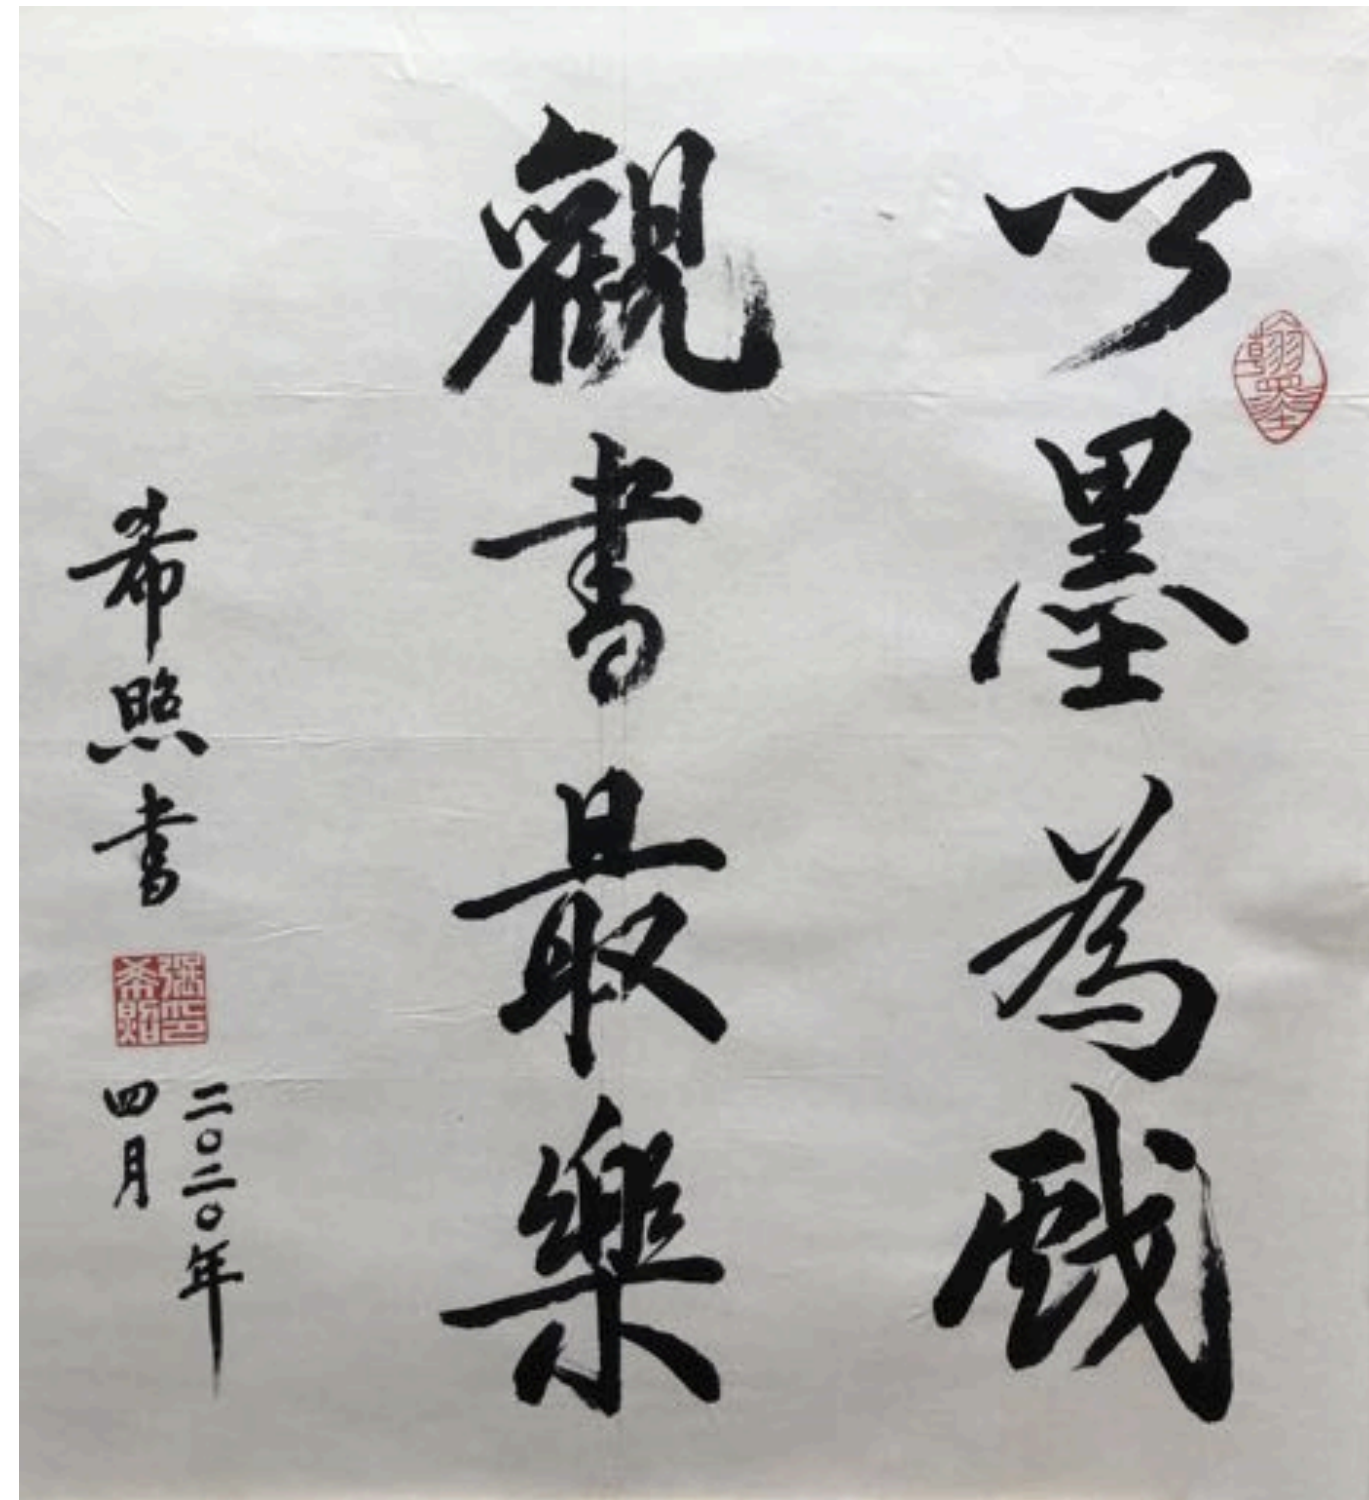 以墨為戲
觀書最樂
希照書
二〇二〇年
四月
翰墨